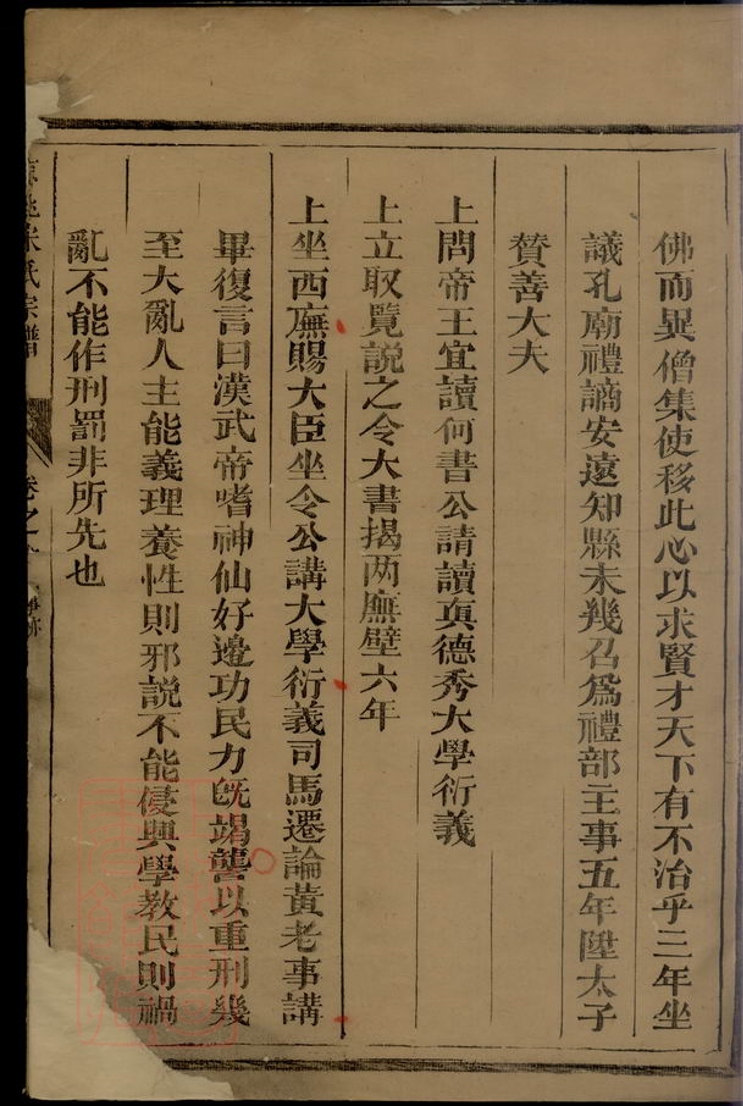 佛而異僧集使移此心以求賢才天下有不治乎三年坐
議孔廟禮謫安遠知縣未幾召爲禮部主事五年陞太子
贊善大夫
上問帝王宜讀何書公請讀真德秀大學衍義
上立取覽說之令大書揭两廡壁六年
上坐西廡賜大臣坐令公講大學衍義司馬遷論黄老事講
畢復言曰漢武帝嗜神仙好邉功民力旣竭以重刑幾
至大亂人主能義理養性則邪說不能侵興學教民則禍
亂不能作刑罰非所先也
宋氏宗譜
卷之